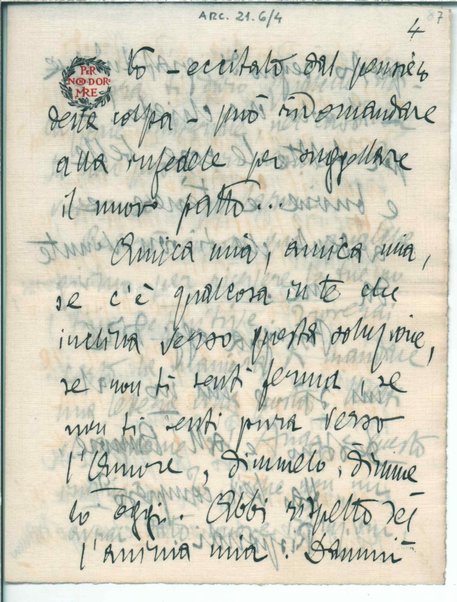 ARC. 21.6/4
4
07
PER
NON DOR
MIRE
to - eccitato dal pensiero
della colpa - può ridomandare
alla infedele per suggellare
il nuovo patto...
Amica mia, amica mia,
se c'è qualcosa in te che
inclina verso questa soluzione,
se non ti senti ferma se
non ti senti pura verso
l'Amore, dimmelo, dimme
lo oggi. Abbi rispetto del
l'anima mia. Dammi